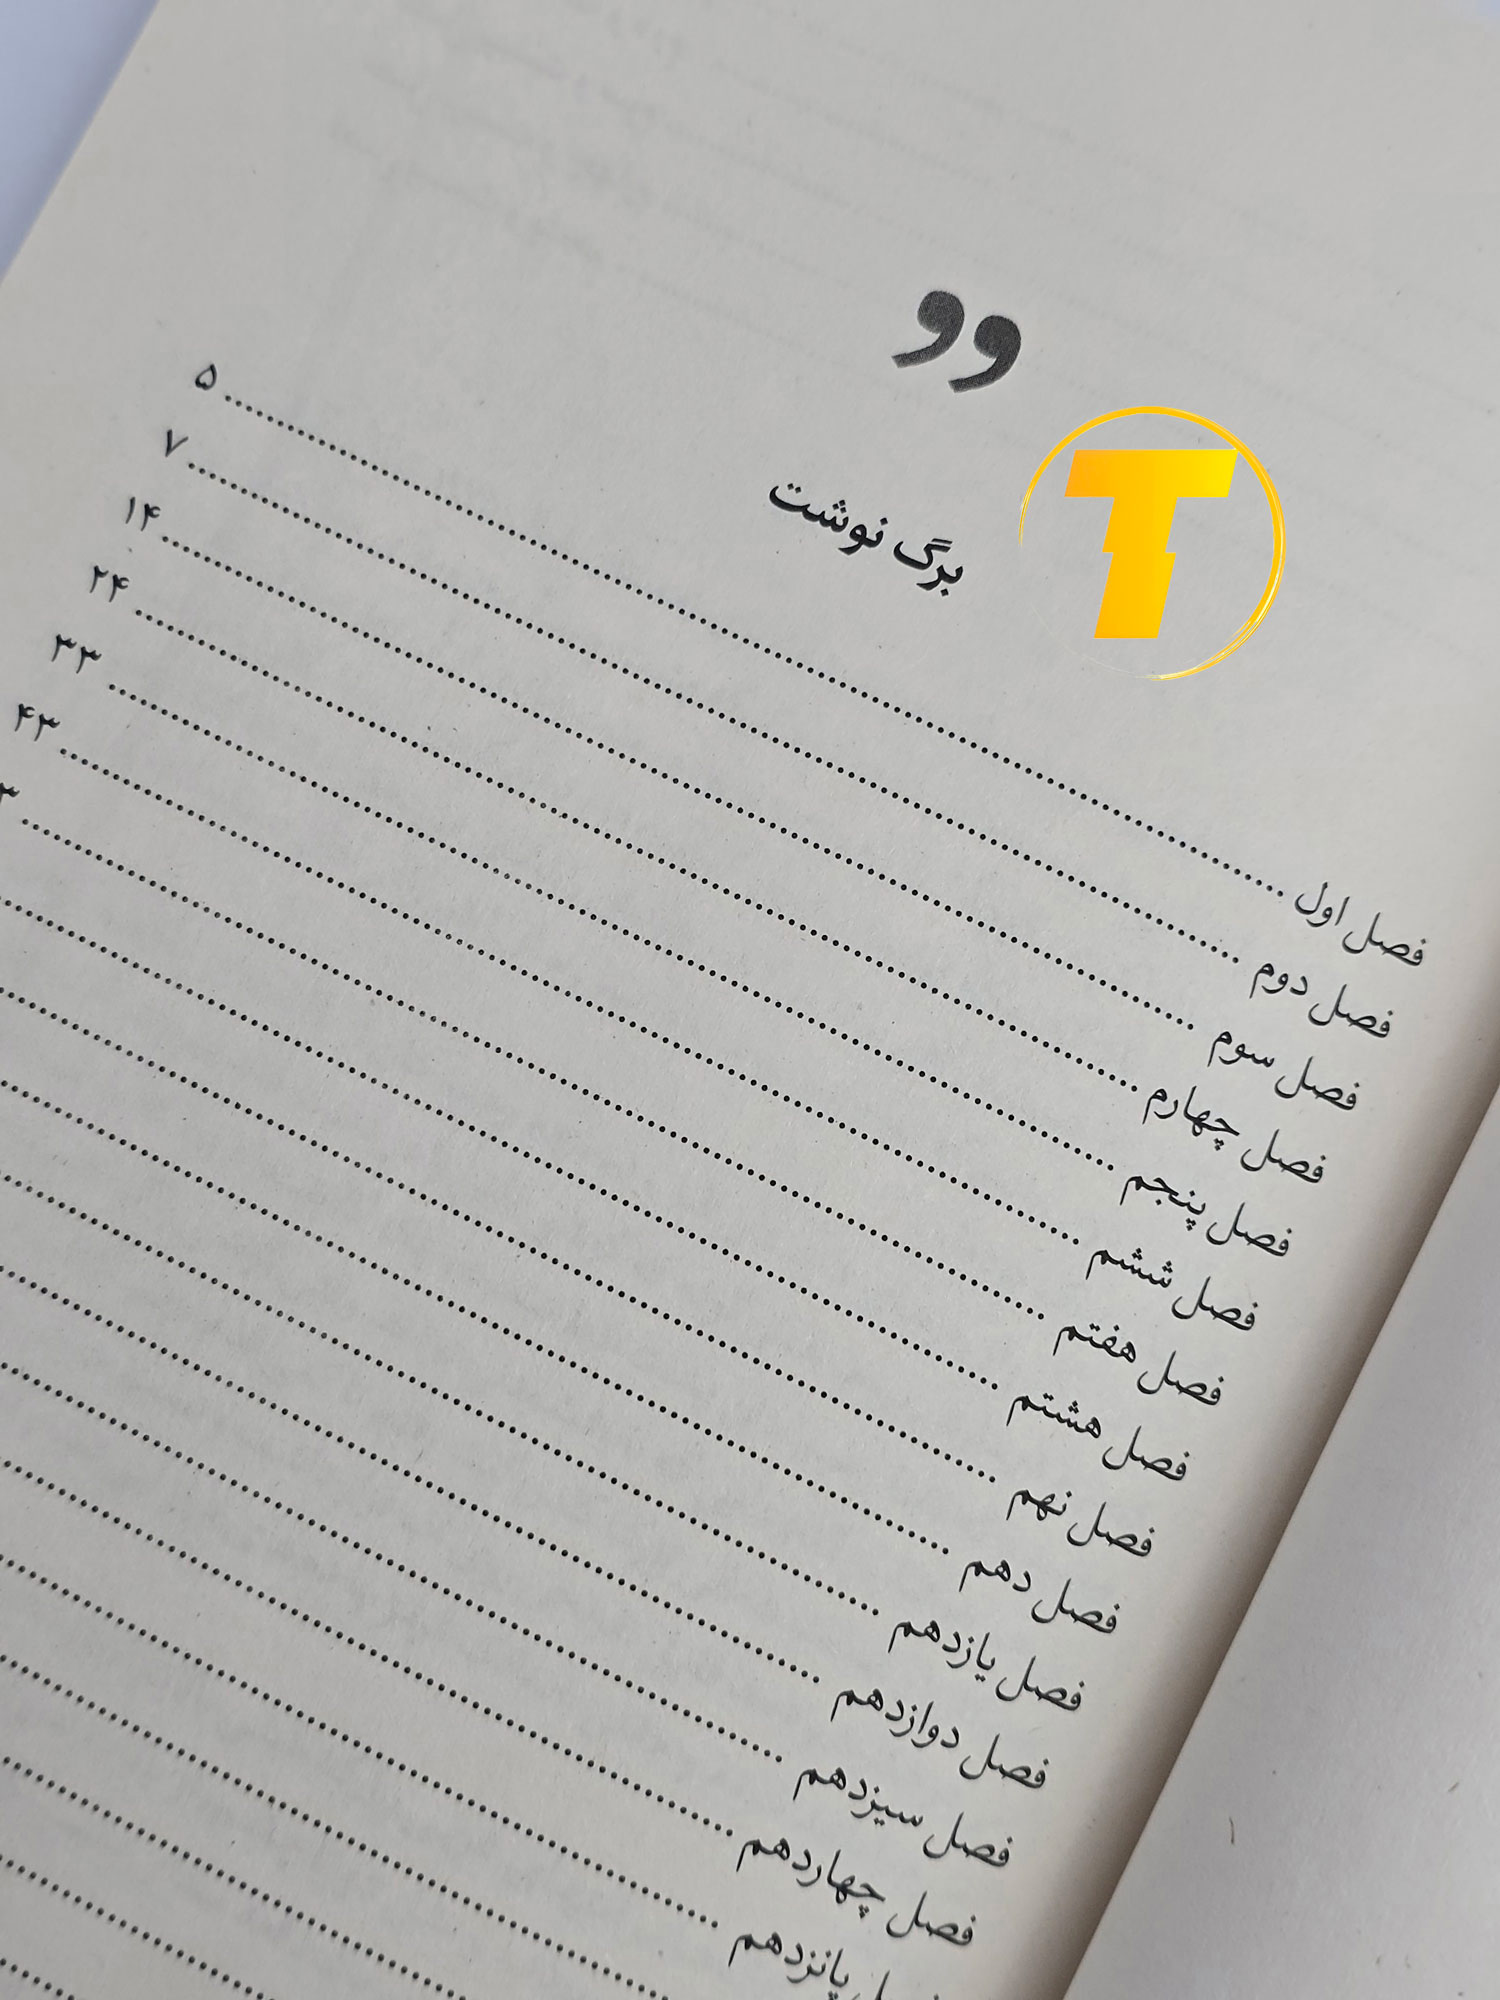 برگ نوشت
T
فصل اول ........ ۵
فصل دوم ........ ۷
فصل سوم ........ ۱۴
فصل چهارم ........ ۲۴
فصل پنجم ........ ۳۳
فصل ششم ........ ۴۳
فصل هفتم ........
فصل هشتم ........
فصل نهم ........
فصل دهم ........
فصل یازدهم ........
فصل دوازدهم ........
فصل سیزدهم ........
فصل چهاردهم ........
پانزدهم ........